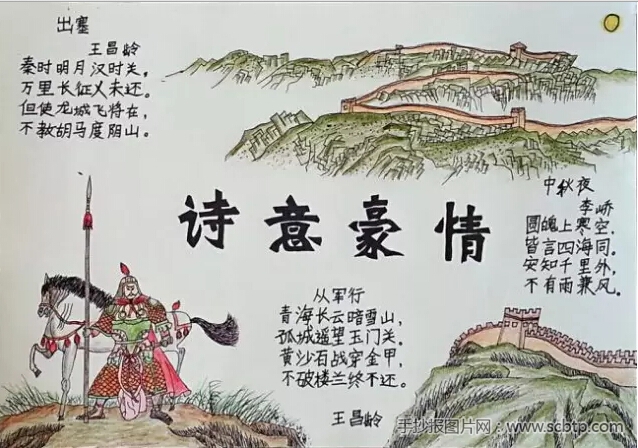 出塞
王昌龄
秦时明月汉时关，
万里长征人未还。
但使龙城飞将在，
不教胡马度阴山。
诗意豪情
中秋夜
李峤
圆魄上寒空，
皆言四海同。
安知千里外，
不有雨兼风。
从军行
青海长云暗雪山，
孤城遥望玉门关。
黄沙石战穿金甲，
不破楼兰终不还。
王昌龄
手抄报图片网：www.scbtp.com